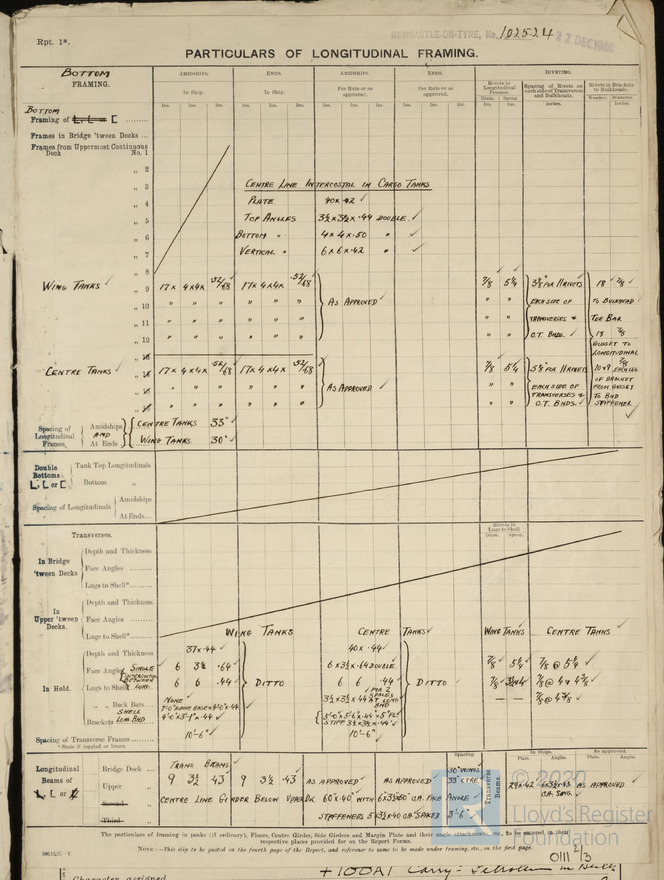 Rpt. 1*.
NEWCASTLE-ON-TYNE, No. 102524 22 DEC
PARTICULARS OF LONGITUDINAL FRAMING.
BOTTOM
FRAMING.
AMIDSHIPS. ENDS. AMIDSHIPS. ENDS. RIVETING.
In Ship. In Ship. Per Rule or as approved. Per Rule or as approved.
Rivets in Longitudinal Frames. Spacing of Rivets on each side of Transverses and Bulkheads. Rivets in Brackets to Bulkheads.
Ins. Ins. Ins. Ins. Ins. Ins. Ins. Ins. Ins. Ins. Ins. Ins. Diam. Ins. Spcg. Ins. Inches. Number. Diameter. Inches.
BOTTOM
Framing of
Frames in Bridge 'tween Decks ...
Frames from Uppermost Continuous
Deck No. 1
" 2
" 3 CENTRE LINE INTERCOSTAL IN CARGO TANKS
" 4 PLATE 40 × .42 ✓
" 5 TOP ANGLES 3½ × 3½ × .44 DOUBLE. ✓
" 6 BOTTOM " 4 × 4 × .50 " ✓
" 7 VERTICAL " 6 × 6 × .42 ✓
" 8
WING TANKS ✓ " 9 17 × 4 × 4 × .52/.68 17 × 4 × 4 × .52/.68 7/8 5¼ 3⅛ FOR 11 RIVETS 18 7/8
" 10 " " " " " " AS APPROVED ✓ " " EACH SIDE OF TO BULKHEAD
" 11 " " " " " " " " TRANSVERSES & TOE BAR
" 12 " " " " " " " " O.T. BHDS. ✓ 18 7/8
GUSSET TO
LONGITUDINAL
CENTRE TANKS ✓ 17 × 4 × 4 × .52/.68 17 × 4 × 4 × .52/.68 7/8 5¼ 3⅛ FOR 11 RIVETS 7/8 EACH LEG
" " " " " " AS APPROVED ✓ " " EACH SIDE OF OF BRACKET
TRANSVERSES & FROM GUSSET
" " " " " " " " O.T. BHDS. ✓ TO BHD
STIFFENER
Spacing of Longitudinal Frames. Amidships AND At Ends
CENTRE TANKS 33" ✓
WING TANKS 30" ✓
Double Bottoms L, C or [ Tank Top Longitudinals
Bottom "
Spacing of Longitudinals Amidships
At Ends...
Transverses. Rivets in Lugs to Shell Diam. Spcg.
In Bridge 'tween Decks Depth and Thickness
Face Angles
Lugs to Shell*
In Upper 'tween Decks. Depth and Thickness
Face Angles
Lugs to Shell* WING TANKS CENTRE TANKS ✓ WING TANKS CENTRE TANKS ✓
In Hold. Depth and Thickness 37 × .44 ✓ 40 × .44 ✓
Face Angles SINGLE 6 3½ .64 ✓ 6 × 3½ × .64 DOUBLE 7/8 5¼ 7/8 @ 5¼ ✓
Lugs to Shell* INTERCOSTAL BETWEEN LONG. 6 6 .44 ✓ DITTO 6 6 .44 ✓ DITTO ✓ 7/8
" " Back Bars NONE 3½ × 3½ × .44 — — 7/8 @ 4⅜ ✓
Brackets SHELL LONG BHD
Spacing of Transverse Frames 10'-6" ✓ 10'-6" ✓
*State if joggled or liners.
Longitudinal Beams of Bridge Deck TRANS BEAMS. Spacing. 30" WINGS Transverse Beams. In Ships. Plate. Angles. As approved. Plate. Angles.
Upper " 9 3½ .43 9 3½ .43 AS APPROVED AS APPROVED 33" CTRE 29 × .42 AS APPROVED ✓
Second CENTRE LINE GIRDER BELOW UPPER DK 60" × .40" WITH FACE ANGLE
Third STIFFENERS 5 × 3½ × .40 OA SPACED 3'-6"
The particulars of framing in peaks (if ordinary), Floors, Centre Girder, Side Girders and Margin Plate and their angle attachments, etc., to be entered in their
respective places provided for on the Report Forms.
NOTE:—This slip to be pasted on the fourth page of the Report, and reference to same to be made under framing, etc., on the first page.
Character assigned
+100A1 Carry. Petroleum in Bulk
© 2020
Lloyd's Register
Foundation